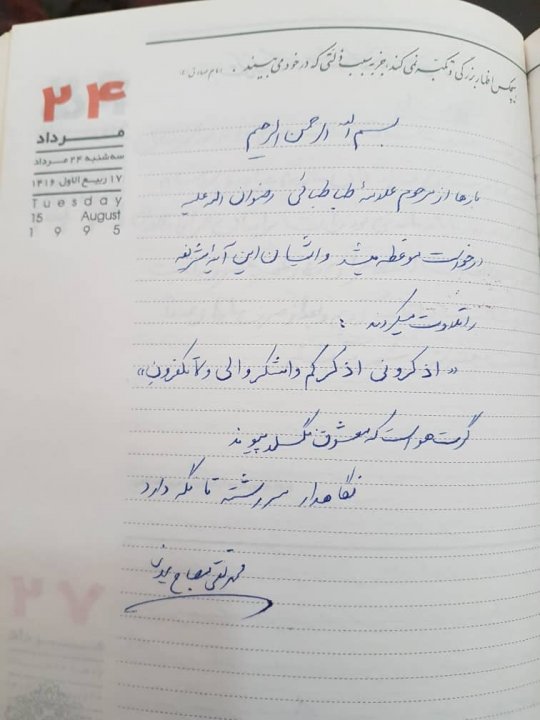 هیچکس اظهار بزرگی و تکبّر نمی کند، جز به سبب ذلتی که در خود می بیند. امام صادق (ع)
۲۴
مرداد
سه شنبه ۲۴ مرداد
۱۷ ربیع الاول ۱۴۱۶
Tuesday
15 August
1995
بسم الله الرحمن الرحیم
بارها از مرحوم علامهٔ طباطبائی رضوان الله علیه
درخواست موعظه میشد و ایشان این آیهٔ شریفه
را تلاوت میکردند :
«اذکرونی اذکرکم واشکروا لی ولا تکفرون»
گرت هواست که معشوق نگسلد پیوند
نگاهدار سر رشته تا نگه دارد
محمد تقی مصباح یزدی
۲۷